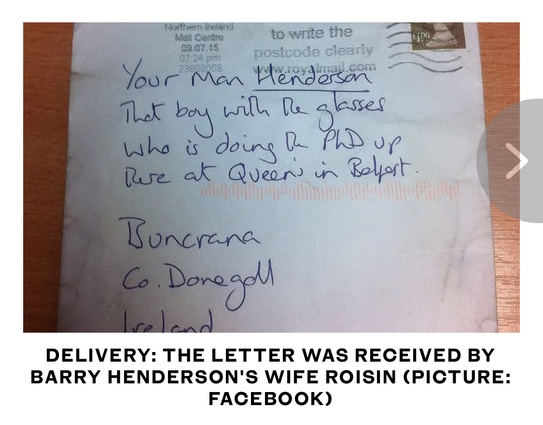 Northern Ireland
Mail Centre
09.07.15
07:24 pm
23808058
to write the
postcode clearly
www.royalmail.com
Your Man Henderson
That boy with the glasses
who is doing the PhD up
here at Queen's in Belfast.
Buncrana
Co. Donegall
Ireland
DELIVERY: THE LETTER WAS RECEIVED BY
BARRY HENDERSON'S WIFE ROISIN (PICTURE:
FACEBOOK)